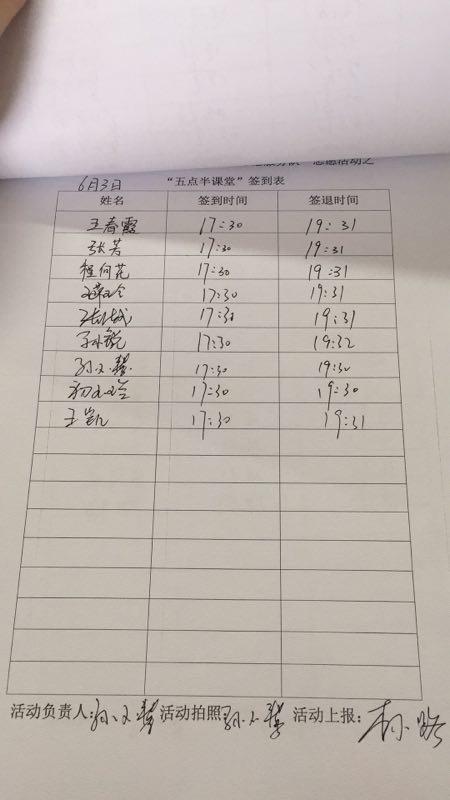 志愿活动之
6月3日 “五点半课堂”签到表
姓名 签到时间 签退时间
王春霞 17:30 19:31
张芳 17:30 19:31
程向花 17:30 19:31
17:30 19:31
17:30 19:31
孙锐 17:30 19:32
孙文慧 17:30 19:30
17:30 19:30
王凯 17:30 19:31
活动负责人:孙文慧 活动拍照 孙文慧 活动上报: